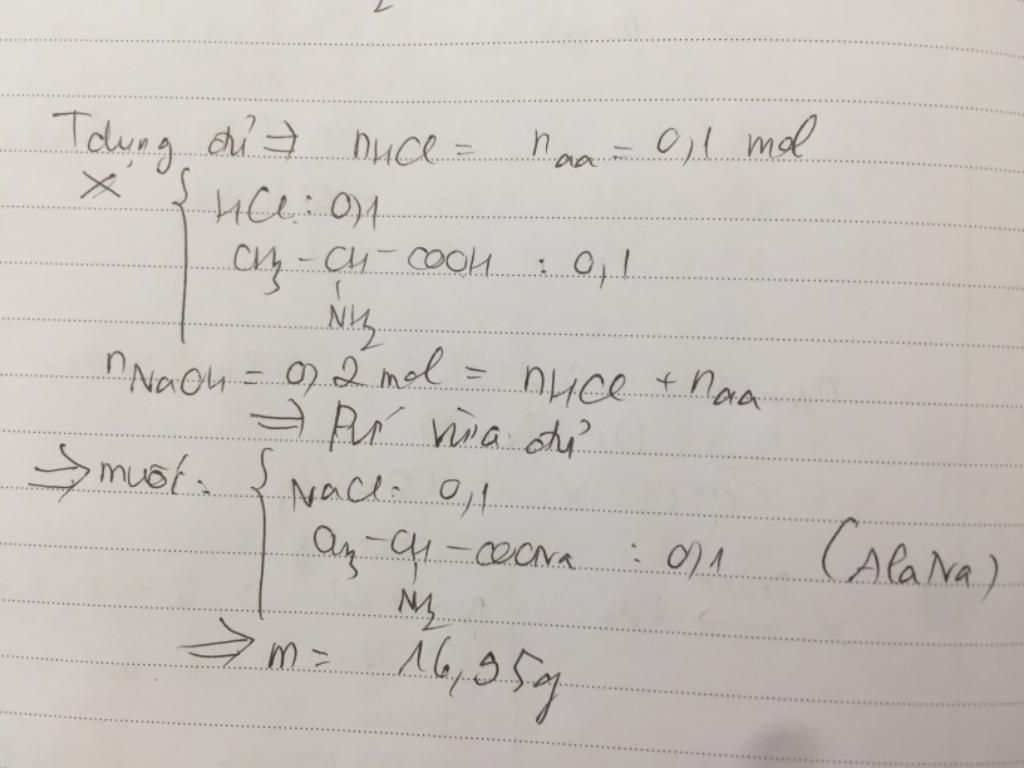 Tdụng đủ ⇒ nHCl = naa = 0,1 mol
X { HCl : 0,1
CH3 - CH - COOH : 0,1
NH2
nNaOH = 0,2 mol = nHCl + naa
⇒ Pứ vừa đủ
⇒ muối : { NaCl : 0,1
CH3 - CH - COONa : 0,1 (AlaNa)
NH2
⇒ m = 16,95g